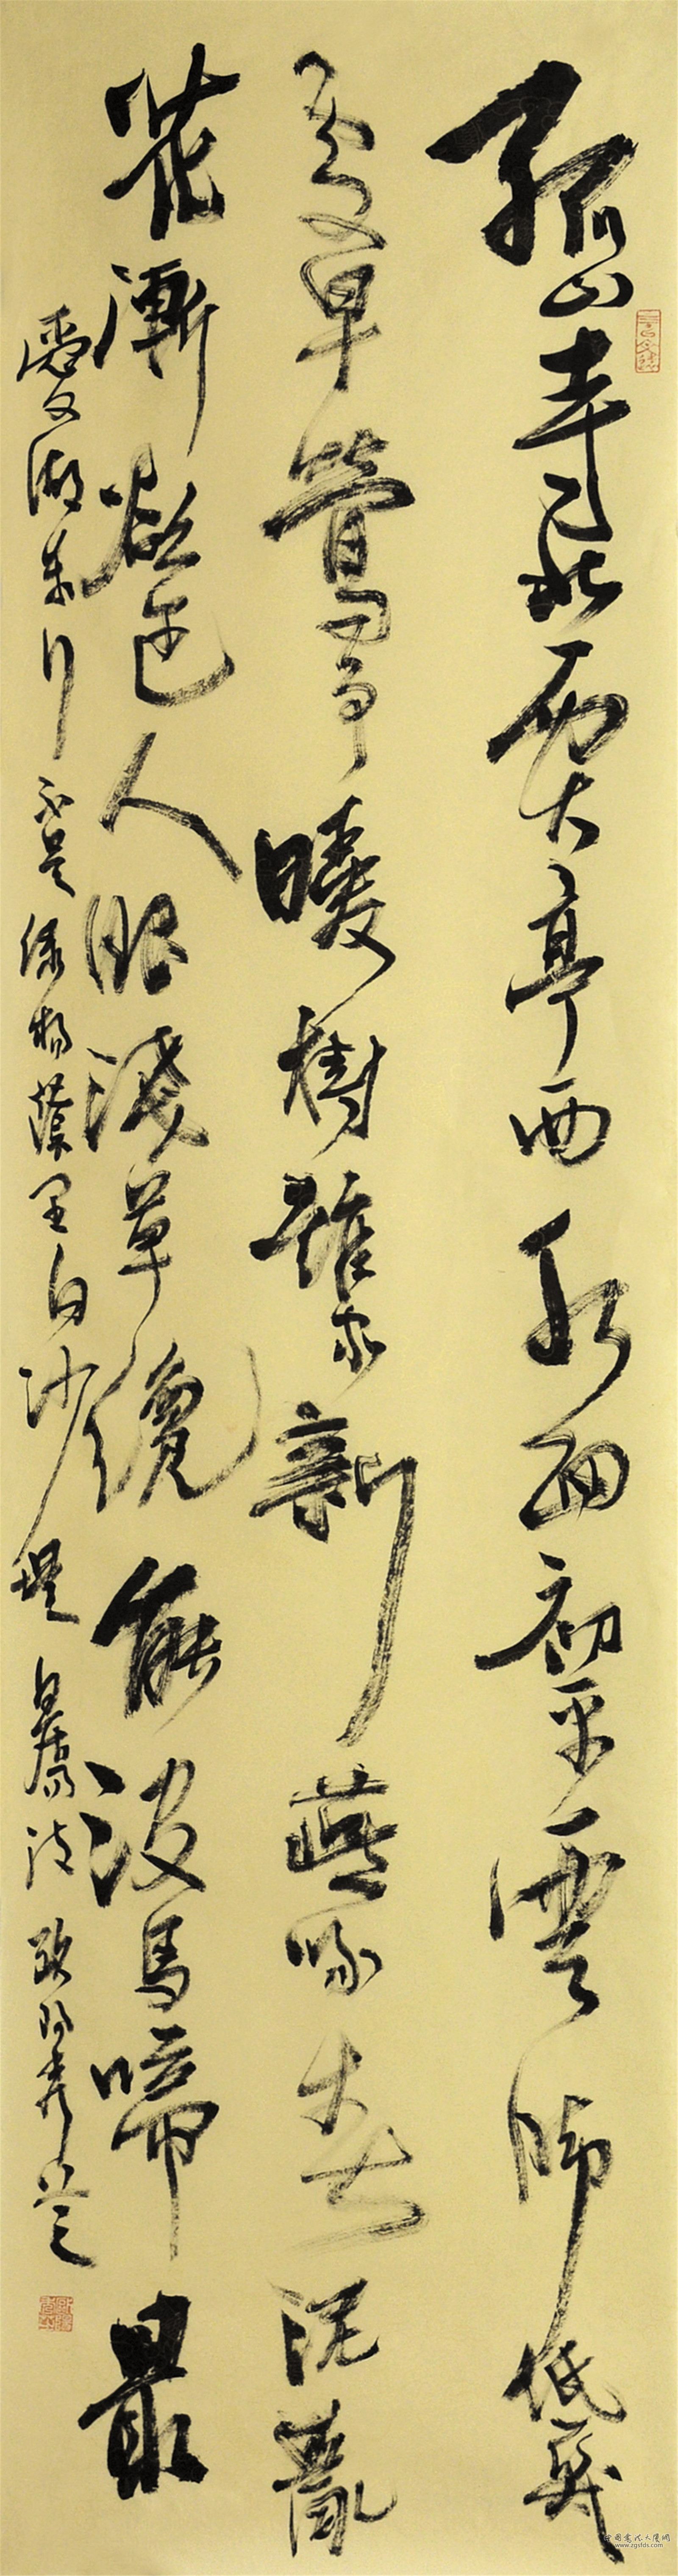 孤山寺北賈亭西水面初平雲腳低幾
處早鶯爭暖樹誰家新燕啄春泥亂
花漸欲迷人眼淺草纔能沒馬啼最
愛湖東行不足綠楊蔭里白沙堤 白居易詩
www.zgsfds.com